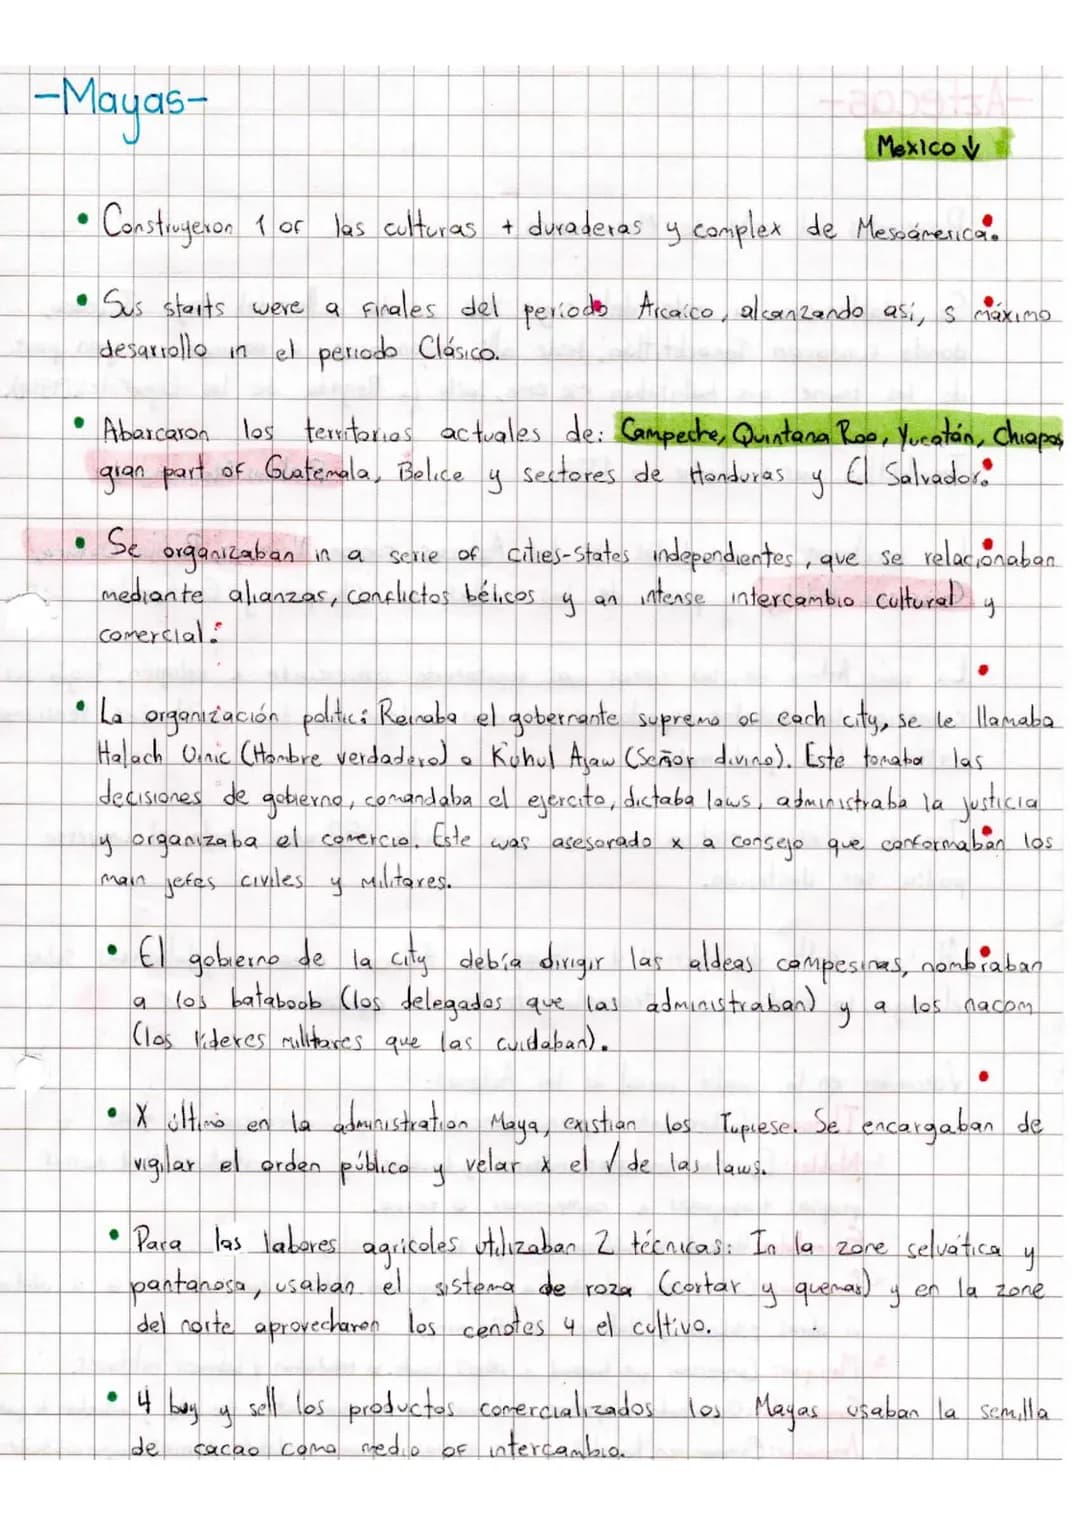 -Mayas-
Mexico ↓
• Construyeron 1 of las culturas + duraderas y complex de Mesoámerica.
• Sus starts were a finales del periodo Arcaico, alcanzando así, s máximo
desarrollo in el periodo Clásico.
• Abarcaron los territorios actuales de: Campeche, Quintana Roo, Yucatán, Chiapas,
gran part of Guatemala, Belice y sectores de Honduras y El Salvador.
• Se organizaban in a serie of cities-states independientes, que se relacionaban
mediante alianzas, conflictos bélicos y an intense intercambio cultural y
comercial.
• La organización politic: Reinaba el gobernante supremo of each city, se le llamaba
Halach Uinic (Hombre verdadero) o Kuhul Ajaw (Señor divino). Este tomaba las
decisiones de gobierno, comandaba el ejercito, dictaba laws, administraba la justicia
y organizaba el comercio. Este was asesorado x a consejo que conformaban los
main jefes civiles y militares.
• El gobierno de la city debía dirigir las aldeas campesinas, nombraban
a los bataboob (los delegados que las administraban) y a los nacom
(los líderes militares que las cuidaban).
• X último en la administration Maya, existian los Tupiese. Se encargaban de
vigilar el orden público y velar x el √ de las laws.
• Para las labores agricoles utilizaban 2 técnicas: In la zone selvática y
pantanosa, usaban el sistema de roza (cortar y quemar) y en la zone
del norte aprovecharon los cenotes 4 el cultivo.
• 4 buy y sell los productos comercializados los Mayas usaban la semilla
de cacao como medio of intercambio.